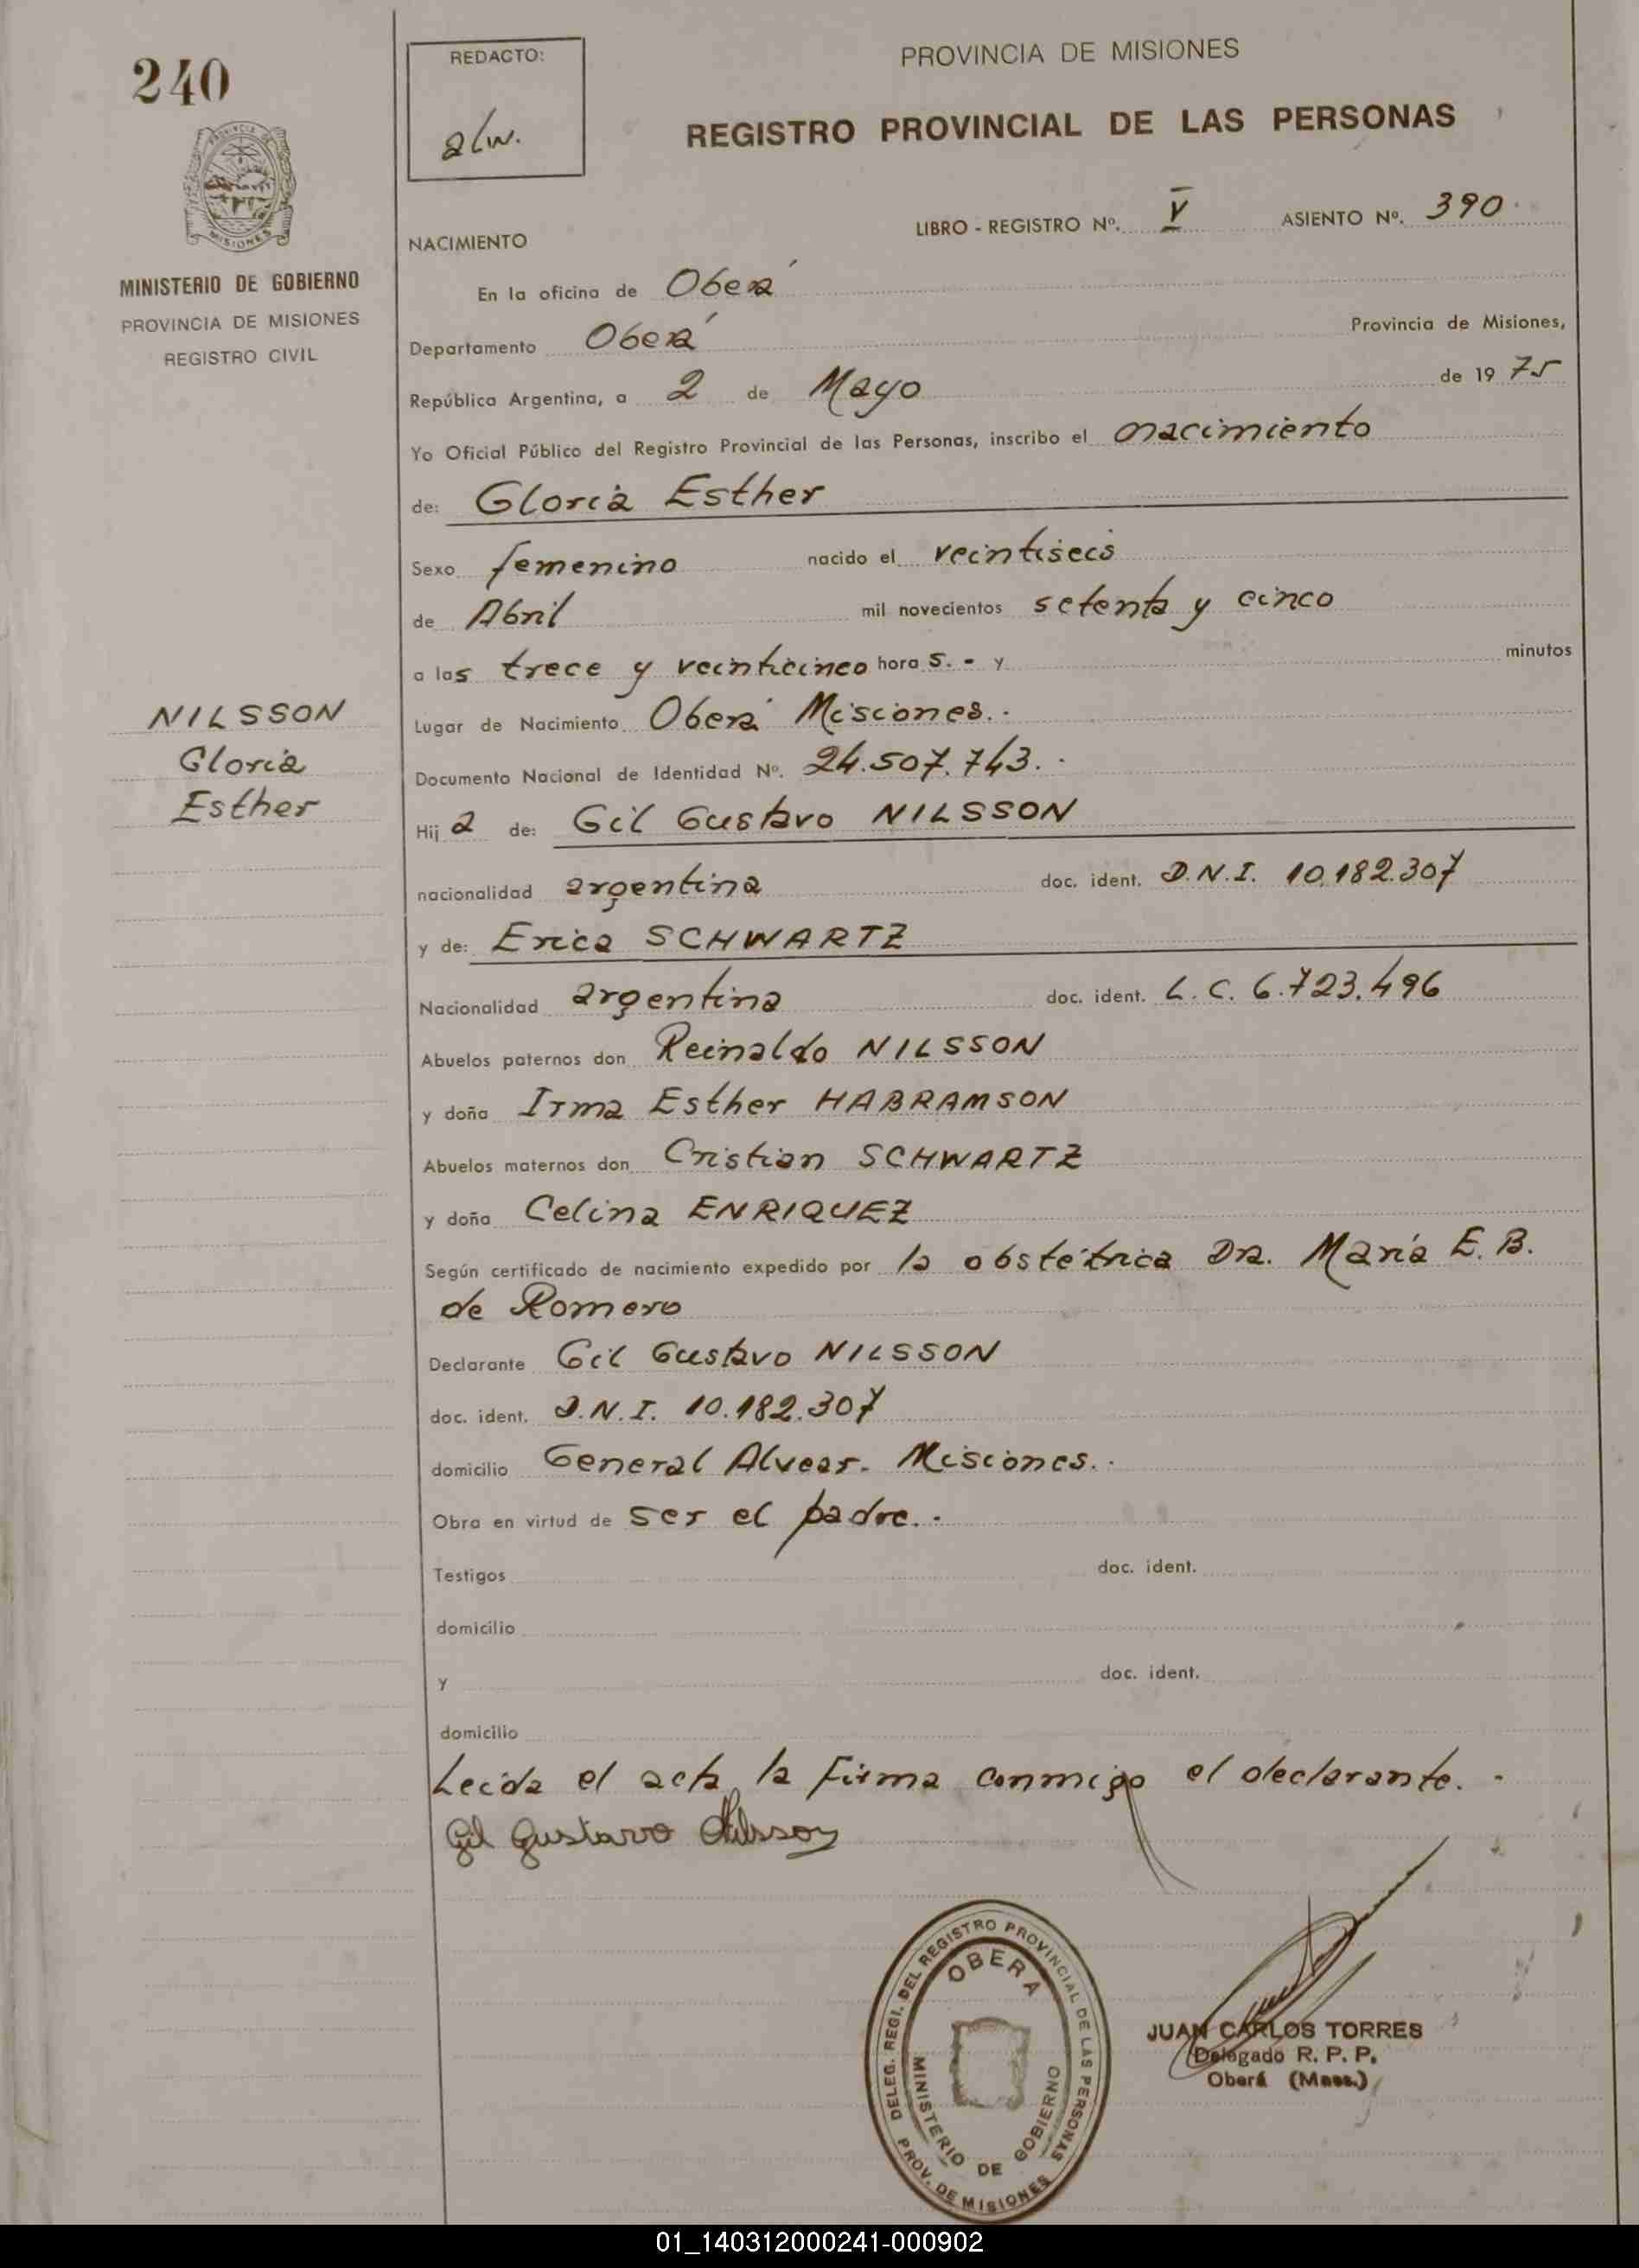 240
REDACTO:
alw.
PROVINCIA DE MISIONES
REGISTRO PROVINCIAL DE LAS PERSONAS
PROVINCIA DE
MISIONES
MINISTERIO DE GOBIERNO
PROVINCIA DE MISIONES
REGISTRO CIVIL
LIBRO - REGISTRO Nº. V ASIENTO Nº. 390
NACIMIENTO
En la oficina de Oberá
Departamento Oberá Provincia de Misiones,
República Argentina, a 2 de Mayo de 1975
Yo Oficial Público del Registro Provincial de las Personas, inscribo el nacimiento
de: Gloria Esther
Sexo femenino nacido el veintiseis
de Abril mil novecientos setenta y cinco
a las trece y veinticinco horas.- y minutos
Lugar de Nacimiento Oberá Misiones.-
Documento Nacional de Identidad Nº. 24.507.743.-
Hija de: Gil Gustavo NILSSON
nacionalidad argentina doc. ident. D.N.I. 10.182.307
y de: Erica SCHWARTZ
Nacionalidad argentina doc. ident. L.C. 6.723.496
Abuelos paternos don Reinaldo NILSSON
y doña Irma Esther HABRAMSON
Abuelos maternos don Cristian SCHWARTZ
y doña Celina ENRIQUEZ
Según certificado de nacimiento expedido por la obstétrica Dra. María E. B.
de Romero
Declarante Gil Gustavo NILSSON
doc. ident. D.N.I. 10.182.307
domicilio General Alvear. Misiones.-
Obra en virtud de ser el padre.-
Testigos doc. ident.
domicilio
y doc. ident.
domicilio
Leída el acta, la firma conmigo el declarante.-
Gil Gustavo Nilsson
NILSSON
Gloria
Esther
DELEG. REGI. DEL REGISTRO PROVINCIAL DE LAS PERSONAS
OBERA
MINISTERIO DE GOBIERNO
PROV. DE MISIONES
JUAN CARLOS TORRES
Delegado R. P. P.
Oberá (Mnes.)
01_140312000241-000902